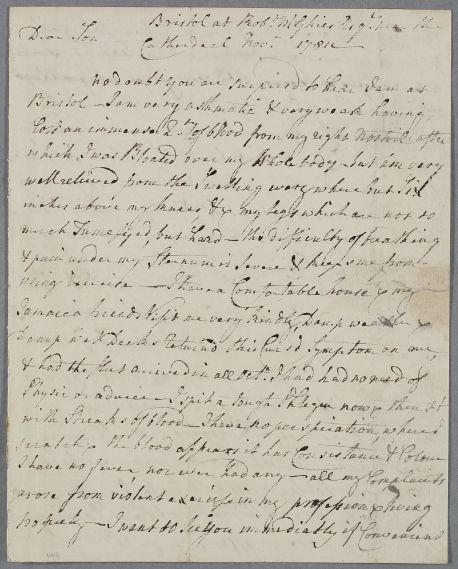 Bristol at Robt. McGhies Esqr. near the
Dear Son Cathedral Novr. 1784
no doubt you are surprized to hear I am at
Bristol — I am very asthmatic & very weak having
lost an immense Qty of blood from my right Nostril after
which I was Bloated over my Whole body but am very
well relieved from the Swelling every where but Six
inches above my knees & my legs which are not so
much Tumefyed, but hard — this difficulty of breathing
& pain under my Sternum is Severe & keeps me from
using Exercise — I have a Comfortable house & my
Jamaica friends Visit me very kindly, Damp weather &
Damp Wet Decks return'd this Curs'd Symptom on me,
& had the fleet arrived in all Octr. I had had no need of
Physic or advice — I spit a tough Phlegm now & then
with Streaks of blood — I have no perspiration, where I
scratch the blood appears it has Consistance & Colour
I have no fever nor ever had any — all my Complaints
arose from violent Exercise in my profession & living
too freely — I want to See You immediately if Convenient